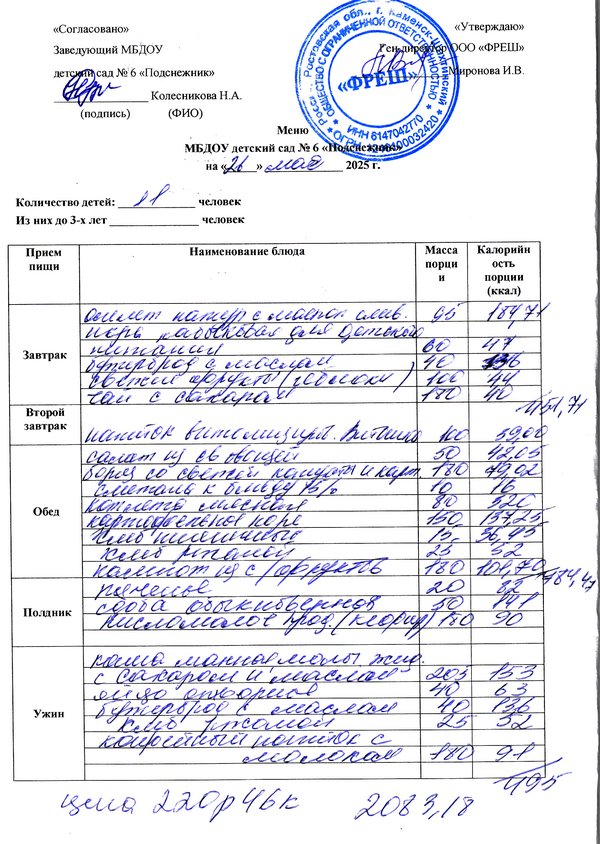 «Согласовано»
«Утверждаю»
Заведующий МБДОУ
Ген.директор ООО «ФРЕШ»
детский сад № 6 «Подснежник»
Миронова И.В.
Колесникова Н.А.
(подпись) (ФИО)
ООО «ФРЕШ»
ИНН 6147042770
Меню
МБДОУ детский сад № 6 «Подснежник»
на « 26 » мая 2025 г.
Количество детей: человек
Из них до 3-х лет человек
Прием пищи Наименование блюда Масса порции Калорийность порции (ккал)
Завтрак
омлет натур с маслом слив. 95 184,71
икра кабачковая для детского
питания 60 47
бутерброд с маслом 40 136
свежие фрукты (яблоки) 100 44
чай с сахаром 180 40
451,71
Второй завтрак
напиток витаминизир. Витошка 100 59,00
Обед
салат из св овощей 50 42,05
борщ со свежей капусты и карт. 180 79,02
сметана к блюду 15% 10 16
котлета мясная 80 320
картофельное пюре 150 137,25
хлеб пшеничный 15 36,45
хлеб ржаной 25 52
компот из с/фруктов 180 101,70
784,47
Полдник
печенье 20 82
сдоба обыкновенная 50 141
кисломолоч прод. (кефир) 180 90
Ужин
каша манная молоч жид.
с сахаром и маслом 205 153
яйцо отварное 40 63
бутерброд с маслом 40 136
хлеб ржаной 25 52
кофейный напиток с
молоком 180 91
495
цена 220р46к 2083,18